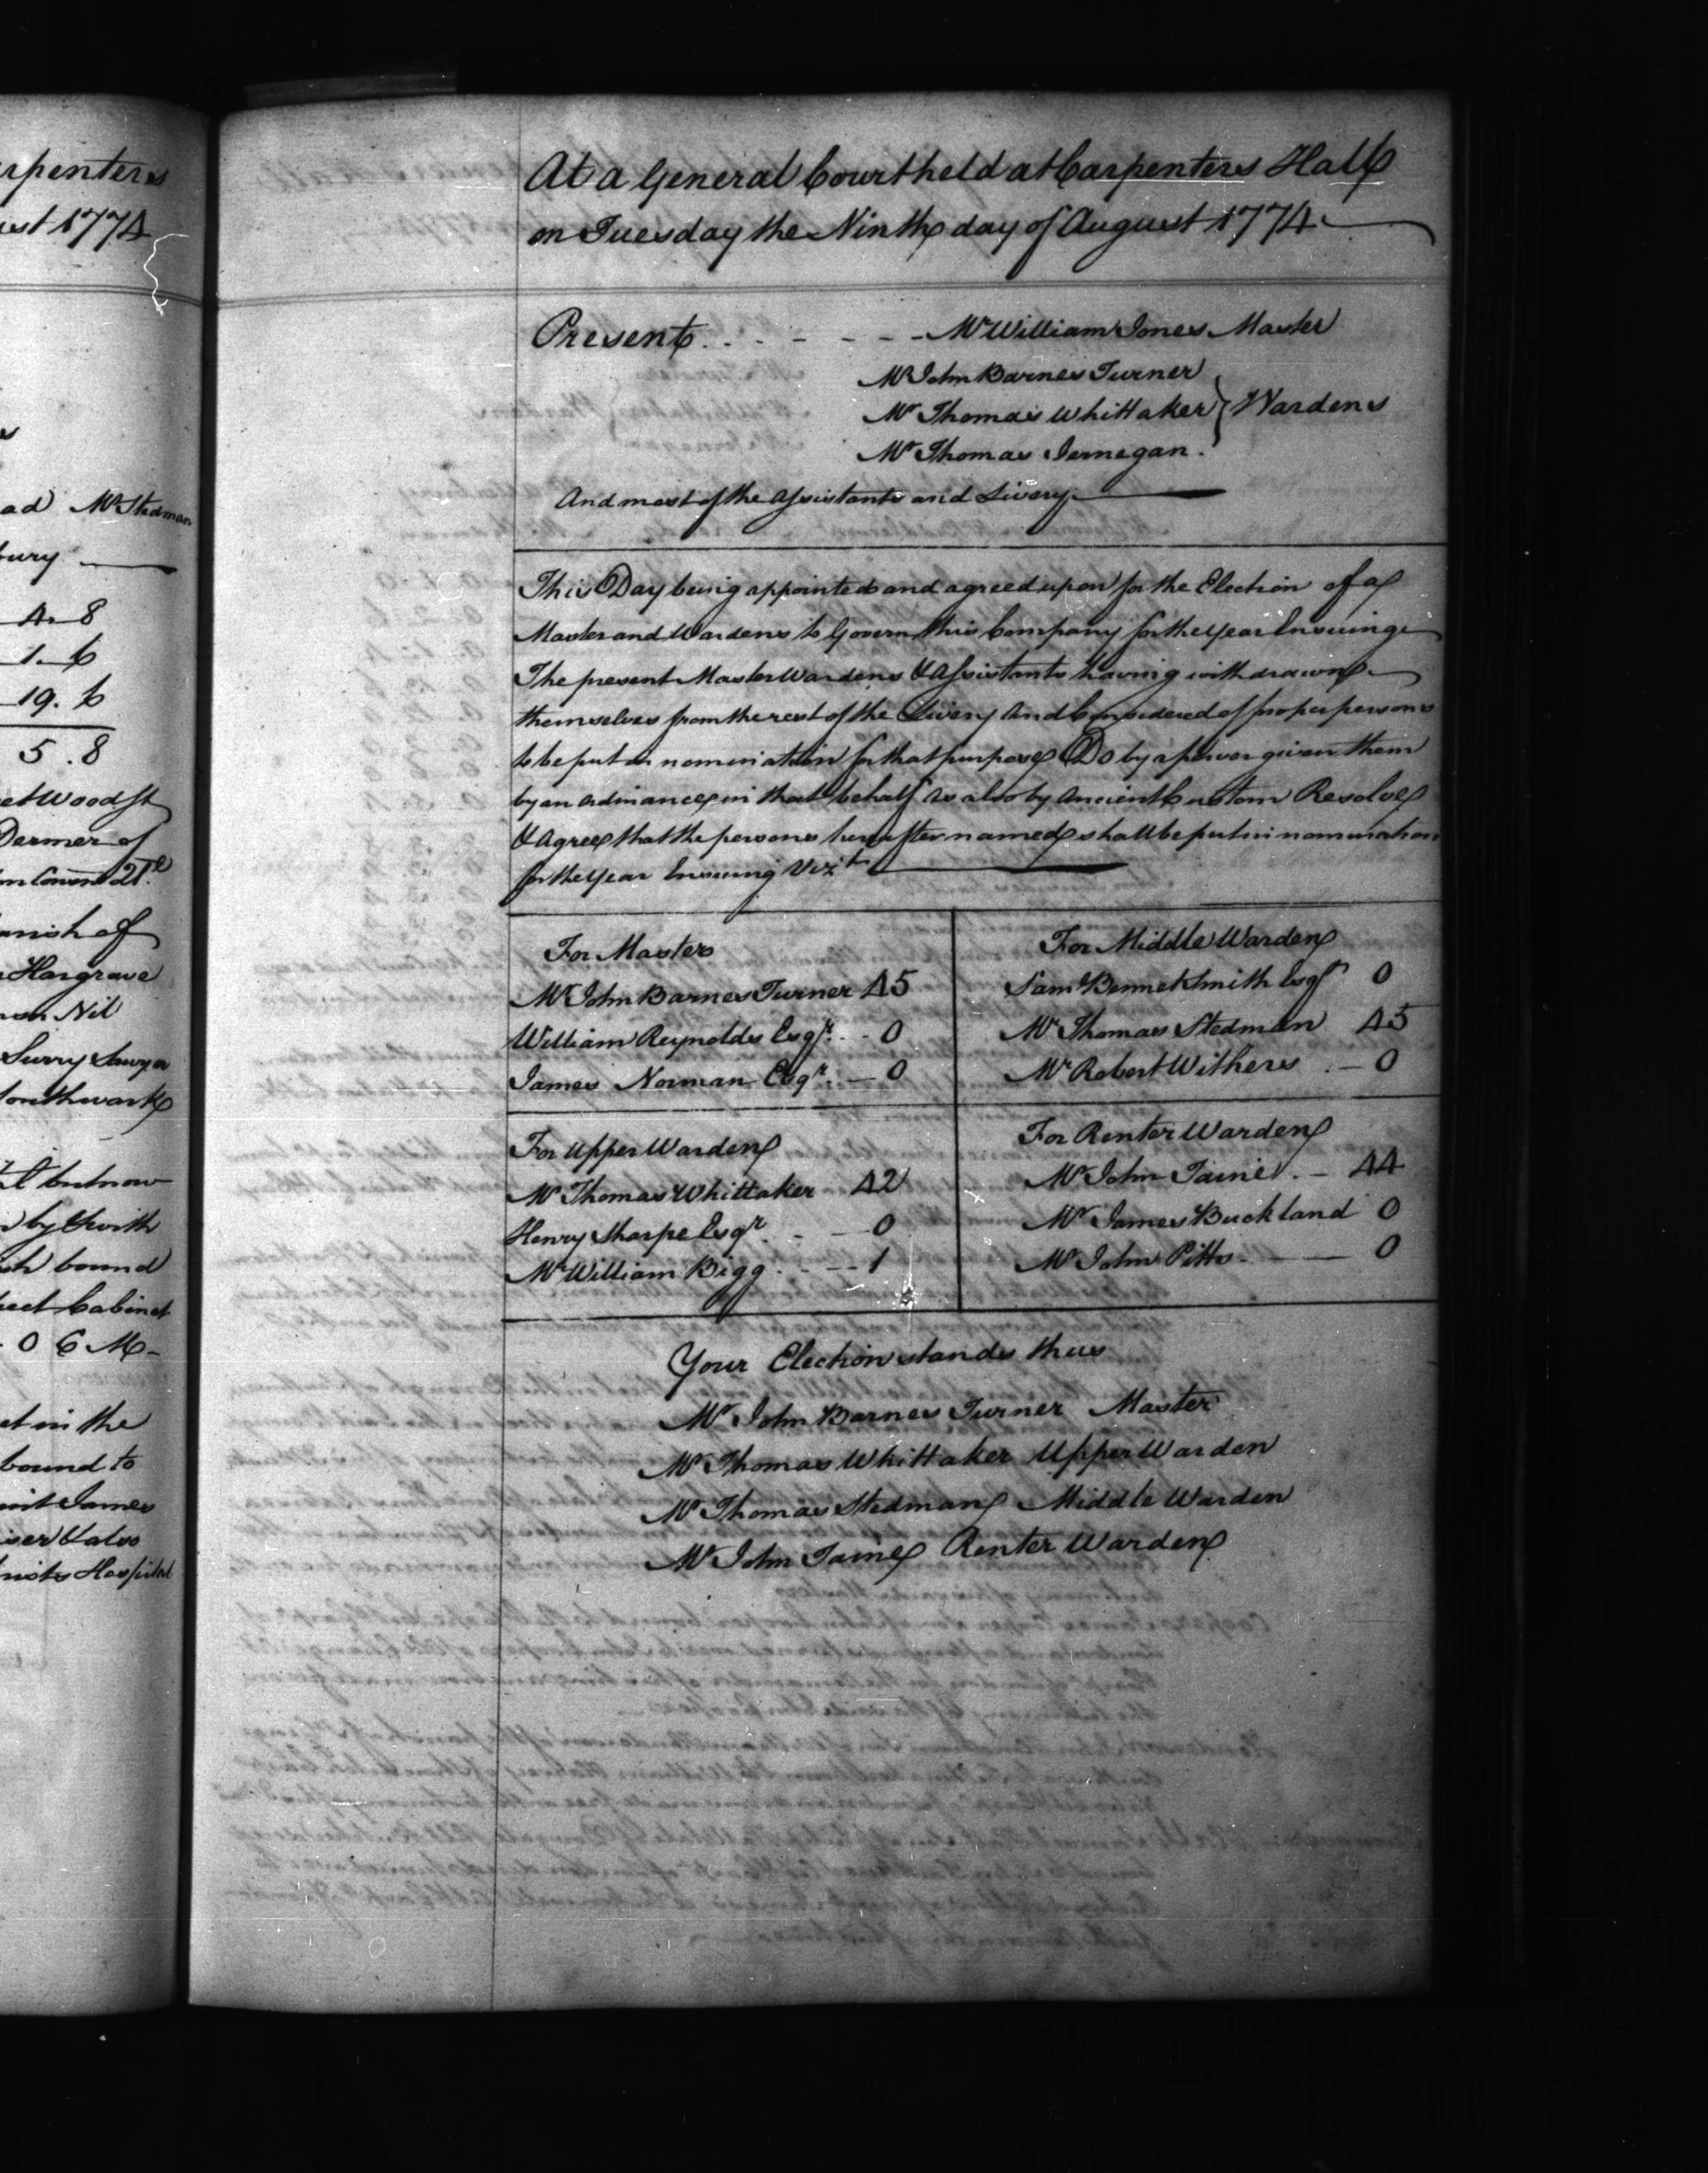 rpenters
ust 1774
ad Mr Stedman
bury
4. 8
1. 6
19. 6
5. 8
et Wood St
Dermer of
arish of
Hargrave
Nil
Surry Sawyer
Southwark
but now
by
bound
Cabinet
0 6 M
et in the
bound to
James
Hospital
At a General Court held at Carpenters Hall
on Tuesday the Ninth day of August 1774
Present. . - - - - Mr William Jones Master
Mr John Barnes Turner
Mr Thomas Whittaker } Wardens
Mr Thomas Jernegan.
And most of the Assistants and Livery
This Day being appointed and agreed upon for the Election of a
Master and Wardens to Govern this Company for the year Ensuing
The present Master Wardens & Assistants having withdrawn
themselves from the rest of the Livery And Considered of proper persons
to be put in nomination for that purpose Do by a power given them
by an ordinance in that behalf As also by Ancient Custom Resolve
& Agree that the persons hereafter named shall be put in nomination
for the year Ensuing Vizt
For Master
Mr John Barnes Turner 45
William Reynolds Esqr. - 0
James Norman Esqr. - 0
For Middle Warden
Saml Bennet Smith Esqr 0
Mr Thomas Stedman 45
Mr Robert Withers . - 0
For Upper Warden
Mr Thomas Whittaker 42
Henry Sharpe Esqr. - - 0
Mr William Bigg. - - - 1
For Renter Warden
Mr John Taine . - 44
Mr James Buckland 0
Mr John Pitts - - 0
Your Election stands thus
Mr John Barnes Turner Master
Mr Thomas Whittaker Upper Warden
Mr Thomas Stedman Middle Warden
Mr John Taine Renter Warden